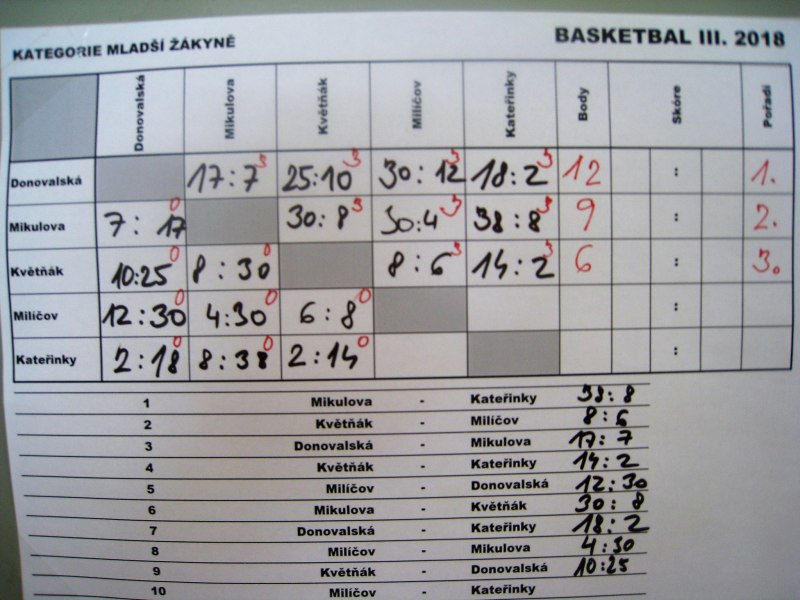 KATEGORIE MLADŠÍ ŽÁKYNĚ BASKETBAL III. 2018
Donovalská Mikulova Květňák Milíčov Kateřinky Body Skóre Pořadí
Donovalská 17:7 3 25:10 3 30:12 3 18:2 3 12 : 1.
Mikulova 7:17 0 30:8 3 30:4 3 38:8 3 9 : 2.
Květňák 10:25 0 8:30 0 8:6 3 14:2 3 6 : 3.
Milíčov 12:30 0 4:30 0 6:8 0 :
Kateřinky 2:18 0 8:38 0 2:14 0 :
1 Mikulova - Kateřinky 38:8
2 Květňák - Milíčov 8:6
3 Donovalská - Mikulova 17:7
4 Květňák - Kateřinky 14:2
5 Milíčov - Donovalská 12:30
6 Mikulova - Květňák 30:8
7 Donovalská - Kateřinky 18:2
8 Milíčov - Mikulova 4:30
9 Květňák - Donovalská 10:25
10 Milíčov - Kateřinky